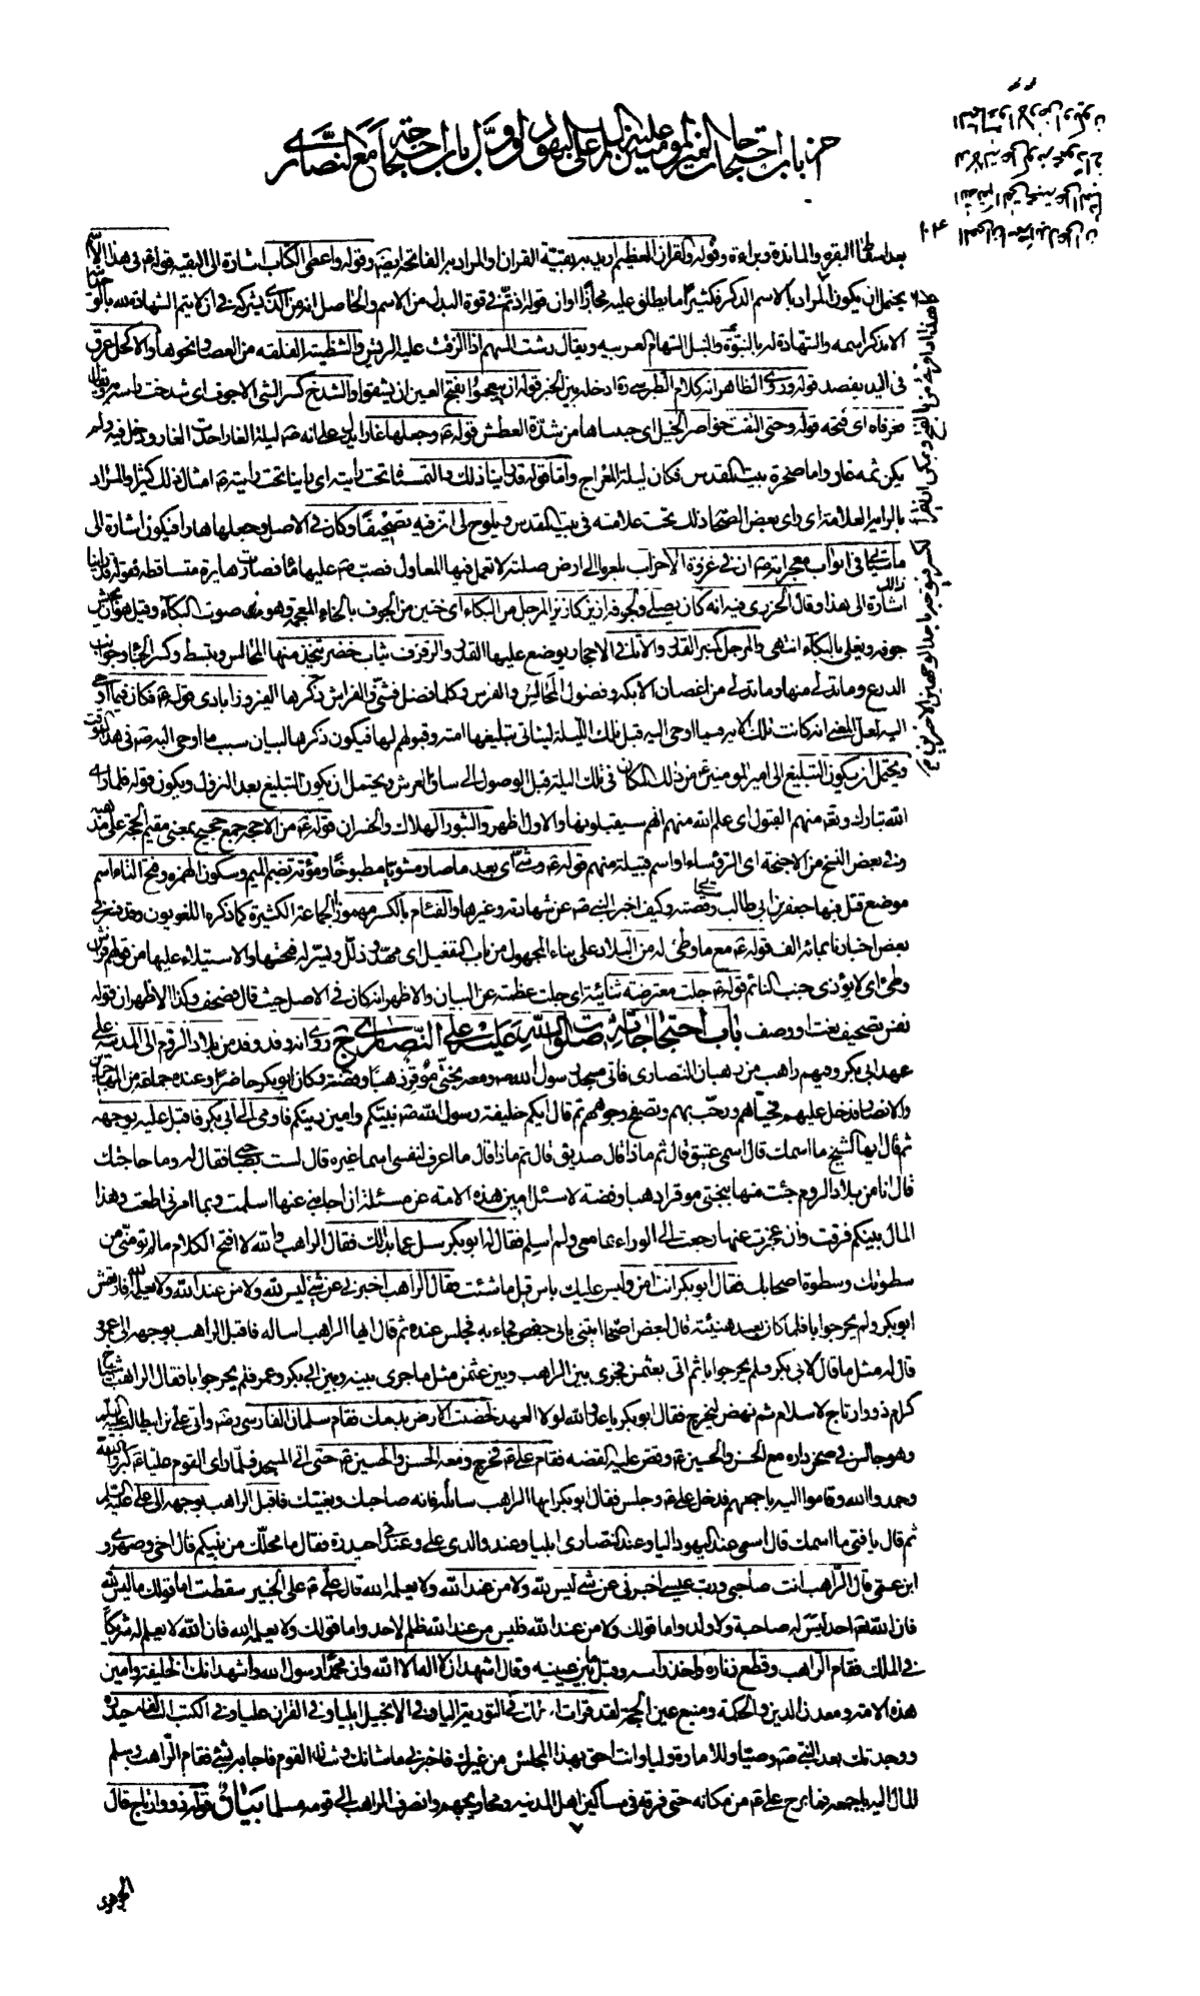 من باب احتجاجات امير المومنين عليه السلم على اليهود و اول باب احتجاجه مع النصارى
بعد اسقاط البقره والمائدة وبراءة وقوله والقران العظيم اريد به بقية القران والمراد به الفاتحه ايضا وقوله واعطى الكتاب اشارة الى البقيه قوله في هذا الاسم
يحتمل ان يكون المراد بالاسم الذكر فكثيرا ما يطلق عليه مجازا او ان قوله اذ تم في قوة البدل من الاسم والحاصل انه من الذى يشركه في ان لا يتم الشهادة لله بالوحدانية
الا بذكر اسمه والشهادة له بالنبوة والنبل السهام العربيه ويقال رشت السهم اذا الزقت عليه الريش والشظيته الفلقه من العصا ونحوها والاكحل عرق
في اليد يفصد قوله وروى الظاهر انه كلام الطبرسي ره ادخله بين الخبر قوله ان يبعجوا بفتح العين ان يشقوا والشدخ كسر الشى الاجوف اى شدخت راسه
فغرفاه اى فتحه قوله وحتى التفت خواصر الخيل اى جنباها من شدة العطش قوله ع وجعلها غارا يدل على انه ص ليلة الغار احدث الغار ودخل فيه ولم
يكن ثمه غار واما صخرة بيت المقدس فكان ليلة المعراج واما قوله قد راينا ذلك والتمسناه تحت رايته اى راينا تحت رايته ع امثال ذلك كثيرا والمراد
بالراية العلامة اى راى بعض الصحابة ذلك تحت علامته في بيت المقدس ويلوح لى ان فيه تصحيفا وكان في الاصل وجعلها هارا فيكون اشارة الى
ما سياتى في ابواب معجزاته ص ان في غزوة الاحزاب بلغوا الى ارض صلبة لا تعمل فيها المعاول فصب ص عليها ماء فصارت هايرة متساقطه فقوله قد راينا
اشارة الى هذا وقال الجزرى فيه انه كان يصلى ولجوفه ازيز كازيز المرجل من البكاء اى خنين من الجوف بالخاء المعجمه وهو صوت البكاء وقيل هو ان يجيش
جوفه ويغلى بالبكاء انتهى والمرجل كمنبر القدر والاثافى الاحجار يوضع عليها القدر والرفرف ثياب خضر تتخذ منها المحابس وتبسط وكسر الخباء وجوانب
الدرع وما تدلى منها وما تدلى من اغصان الايكه وفضول المحابس والفرش وكلما فضل فثنى والفراش ذكرها الفيروزابادى قوله ع فكان فيما اوحى
اليه لعل المعنى انه كانت تلك الايه فيما اوحى اليه قبل تلك الليلة ليتاتى تبليغها امته وقبولهم لها فيكون ذكرها لبيان سبب ما اوحى اليه ص في هذا الوقت
ويحتمل ان يكون التبليغ الى امير المومنين ع من ذلك المكان في تلك الليلة قبل الوصول الى ساق العرش ويحتمل ان يكون التبليغ بعد النزول ويكون قوله فلما راى
الله تبارك وتع منهم القبول اى علم الله منهم انهم سيقبلونها والاول اظهر والثبور الهلاك والخسران قوله ع من الاحجه جمع حجيج بمعنى مقيم الحجة على مذهبه
وفى بعض النسخ من الاجنحة اى الرؤساء او اسم قبيلة منهم قوله ع وشى اى بعد ما صار مشويا مطبوخا ومؤتة بضم الميم وسكون الهمزه وفتح التاء اسم
موضع قتل فيها جعفر بن ابى طالب وسياتى قصته وكيف اخبر النبى ص عن شهادته وغيرها والفئام بالكسر مهموزا الجماعة الكثيرة كما ذكره اللغويون وقد فسر في
بعض اخبارنا بمائة الف قوله ع مع ما وطئ له من البلاد على بناء المجهول من باب التفعيل اى مهد وذلل ويسر له فتحها والاستيلاء عليها من قولهم فراش
وطئ اى لا يؤذى جنب النائم قوله ع جلت معترضة ثنائية اى جلت عظمته عن البيان والاظهر انه كان في الاصل حيث قال فصحف وكذا الاظهر ان قوله
نفس تصحيف نعت او وصف باب احتجاجاته صلوات الله عليه على النصارى ج روى انه وفد وفد من بلاد الروم الى المدينه على
عهد ابى بكر وفيهم راهب من رهبان النصارى فاتى مسجد رسول الله ص ومعه بختى موقر ذهبا وفضة وكان ابو بكر حاضرا وعنده جماعة من المهاجرين
والانصار فدخل عليهم وحياهم ورحب بهم وتصفح وجوههم ثم قال ايكم خليفة رسول الله ص نبيكم وامين دينكم فاومى الى ابى بكر فاقبل عليه بوجهه
ثم قال ايها الشيخ ما اسمك قال اسمى عتيق قال ثم ماذا قال صديق قال ثم ماذا قال ما اعرف لنفسى اسما غيره قال لست بصاحبى فقال له وما حاجتك
قال انا من بلاد الروم جئت منها ببختى موقر ذهبا وفضة لاسئل امين هذه الامة عن مسئلة ان اجابنى عنها اسلمت وبما امرنى اطعت وهذا
المال بينكم فرقت وان عجز عنها رجعت الى الوراء بما معى ولم اسلم فقال له ابو بكر سل عما بدالك فقال الراهب والله لا افتح الكلام ما لم تومنى من
سطوتك وسطوة اصحابك فقال ابو بكر انت امن وليس عليك باس قل ما شئت فقال الراهب اخبرنى عن شئ ليس لله ولا من عند الله ولا يعلمه الله فارتعش
ابو بكر ولم يحر جوابا فلما كان بعد هنيئة قال لبعض اصحابه ايتنى بابى حفص فجاء به فجلس عنده ثم قال ايها الراهب اساله فاقبل الراهب بوجهه الى عمر و
قال له مثل ما قال لابى بكر فلم يحر جوابا ثم اتى بعثمن فجرى بين الراهب وبين عثمن مثل ما جرى بينه وبين ابى بكر وعمر فلم يحر جوابا فقال الراهب اشياخ
كرام ذوو ارتاج لاسلام ثم نهض ليخرج فقال ابو بكر يا عدو الله لولا العهد لخضبت الارض بدمك فقام سلمان الفارسى رض واتى على بن ابيطالب عليه السلم
وهو جالس في صحن داره مع الحسن والحسين ع وقص عليه القصه فقام على ع فخرج ومعه الحسن والحسين ع حتى اتى المسجد فلما راى القوم عليا ع كبروا الله
وحمدوا الله وقاموا اليه باجمعهم فدخل على ع وجلس فقال ابو بكر ايها الراهب سائله فانه صاحبك وبغيتك فاقبل الراهب بوجهه الى على عليه السلم
ثم قال يا فتى ما اسمك قال اسمى عند اليهود اليا وعند النصارى ايليا وعند والدى على وعند امى حيدرة فقال ما محلك من نبيكم قال اخى وصهرى و
ابن عمى قال الراهب انت صاحبى ورب عيسى اخبرنى عن شئ ليس لله ولا من عند الله ولا يعلمه الله قال على ع على الخبير سقطت اما قولك ما ليس لله
فان الله تع احد ليس له صاحبة ولا ولد واما قولك ولا من عند الله فليس من عند الله ظلم لاحد واما قولك ولا يعلمه الله فان الله لا يعلم له شريكا
في الملك فقام الراهب وقطع زناره واخذ راسه وقبل ما بين عينيه وقال اشهد ان لا اله الا الله وان محمدا رسول الله واشهد انك الخليفة وامين
هذه الامة ومعدن الدين والحكمة ومنبع عين الحجة لقد قرات اسمك في التورية اليا وفي الانجيل ايليا وفي القران عليا وفي الكتب السالفه حيدره
ووجدتك بعد النبى ص وصيا وللامارة وليا وانت احق بهذا المجلس من غيرك فاخبرنى ما شانك وشان القوم فاجابه بشئ فقام الراهب وسلم
المال اليه باجمعه فما برح على ع من مكانه حتى فرقه في مساكين اهل المدينه ومحاويجهم وانصرف الراهب الى قومه مسلما بيان قوله ذوو ارتاج قال
الجوهرى